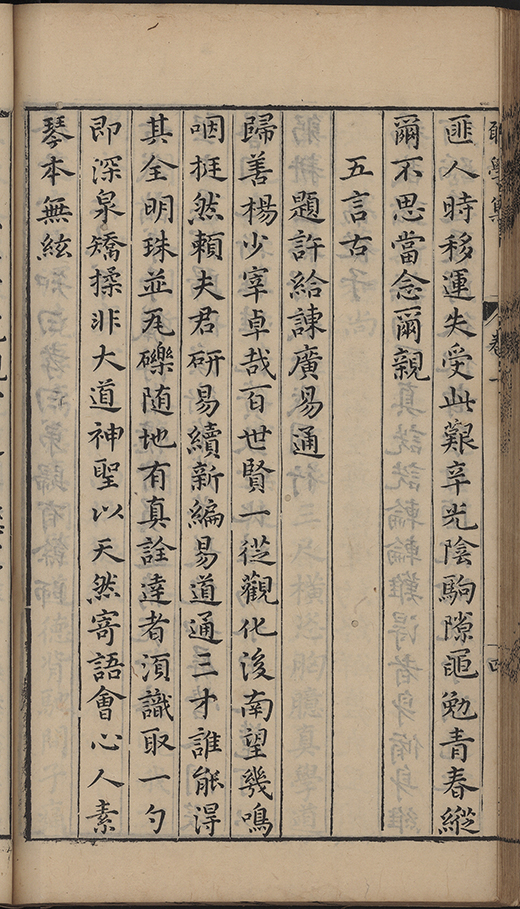 匪人時移運失受此艱辛光陰駒隙黽勉青春縱
爾不思當念爾親
五言古
題許給諫廣易通
歸善楊少宰卓哉百世賢一從觀化後南望幾鳴
咽挺然賴夫君研易續新編易道通三才誰能得
其全明珠並瓦礫随地有真詮達者須識取一勺
即深泉矯揉非大道神聖以天然寄語會心人素
琴本無絃